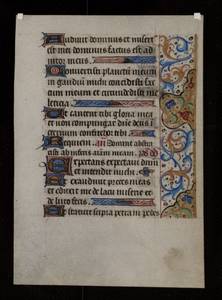 Audivit dominus et misert
est mei dominus factus est ad
iutor meus.
Convertisti planctū meum
in gaudiū michi concidisti sac
cum meum et circūdedisti me
leticia.
Ut cantet tibi gloria mea
et non compungar dñe deus i
eternum confitebor tibi.
Requiem.
Expectans expectavi dn̄m
et intendit michi.
Et exaudivit preces meas
et eduxit me de lacu miserie et
de luto fecis.
Et statuit supra petrā pedes